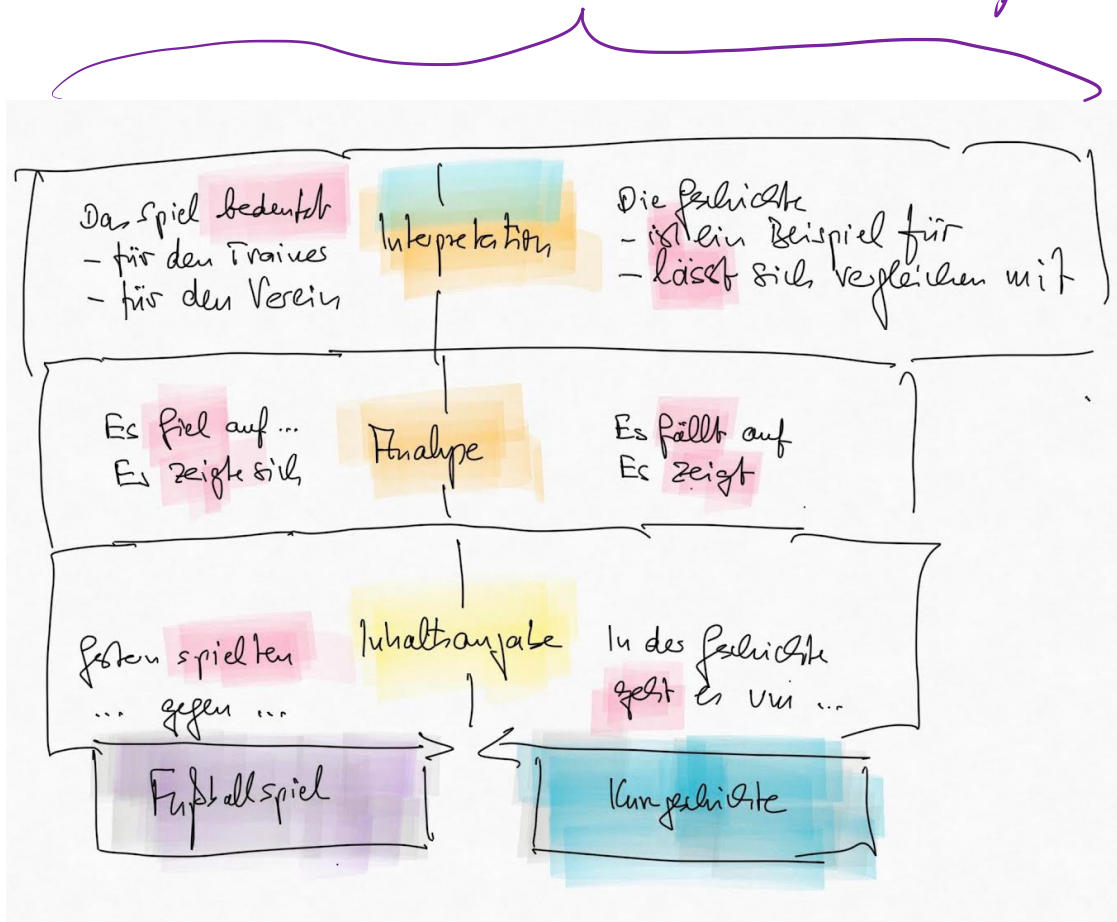 Das Spiel bedeutet
- für den Trainer
- für den Verein
Interpretation
Die Geschichte
- ist ein Beispiel für
- lässt sich vergleichen mit
Es fiel auf ...
Es zeigte sich
Analyse
Es fällt auf
Es zeigt
Gestern spielten
... gegen ...
Inhaltsangabe
In der Geschichte
geht es um ...
Fußballspiel
Kurzgeschichte